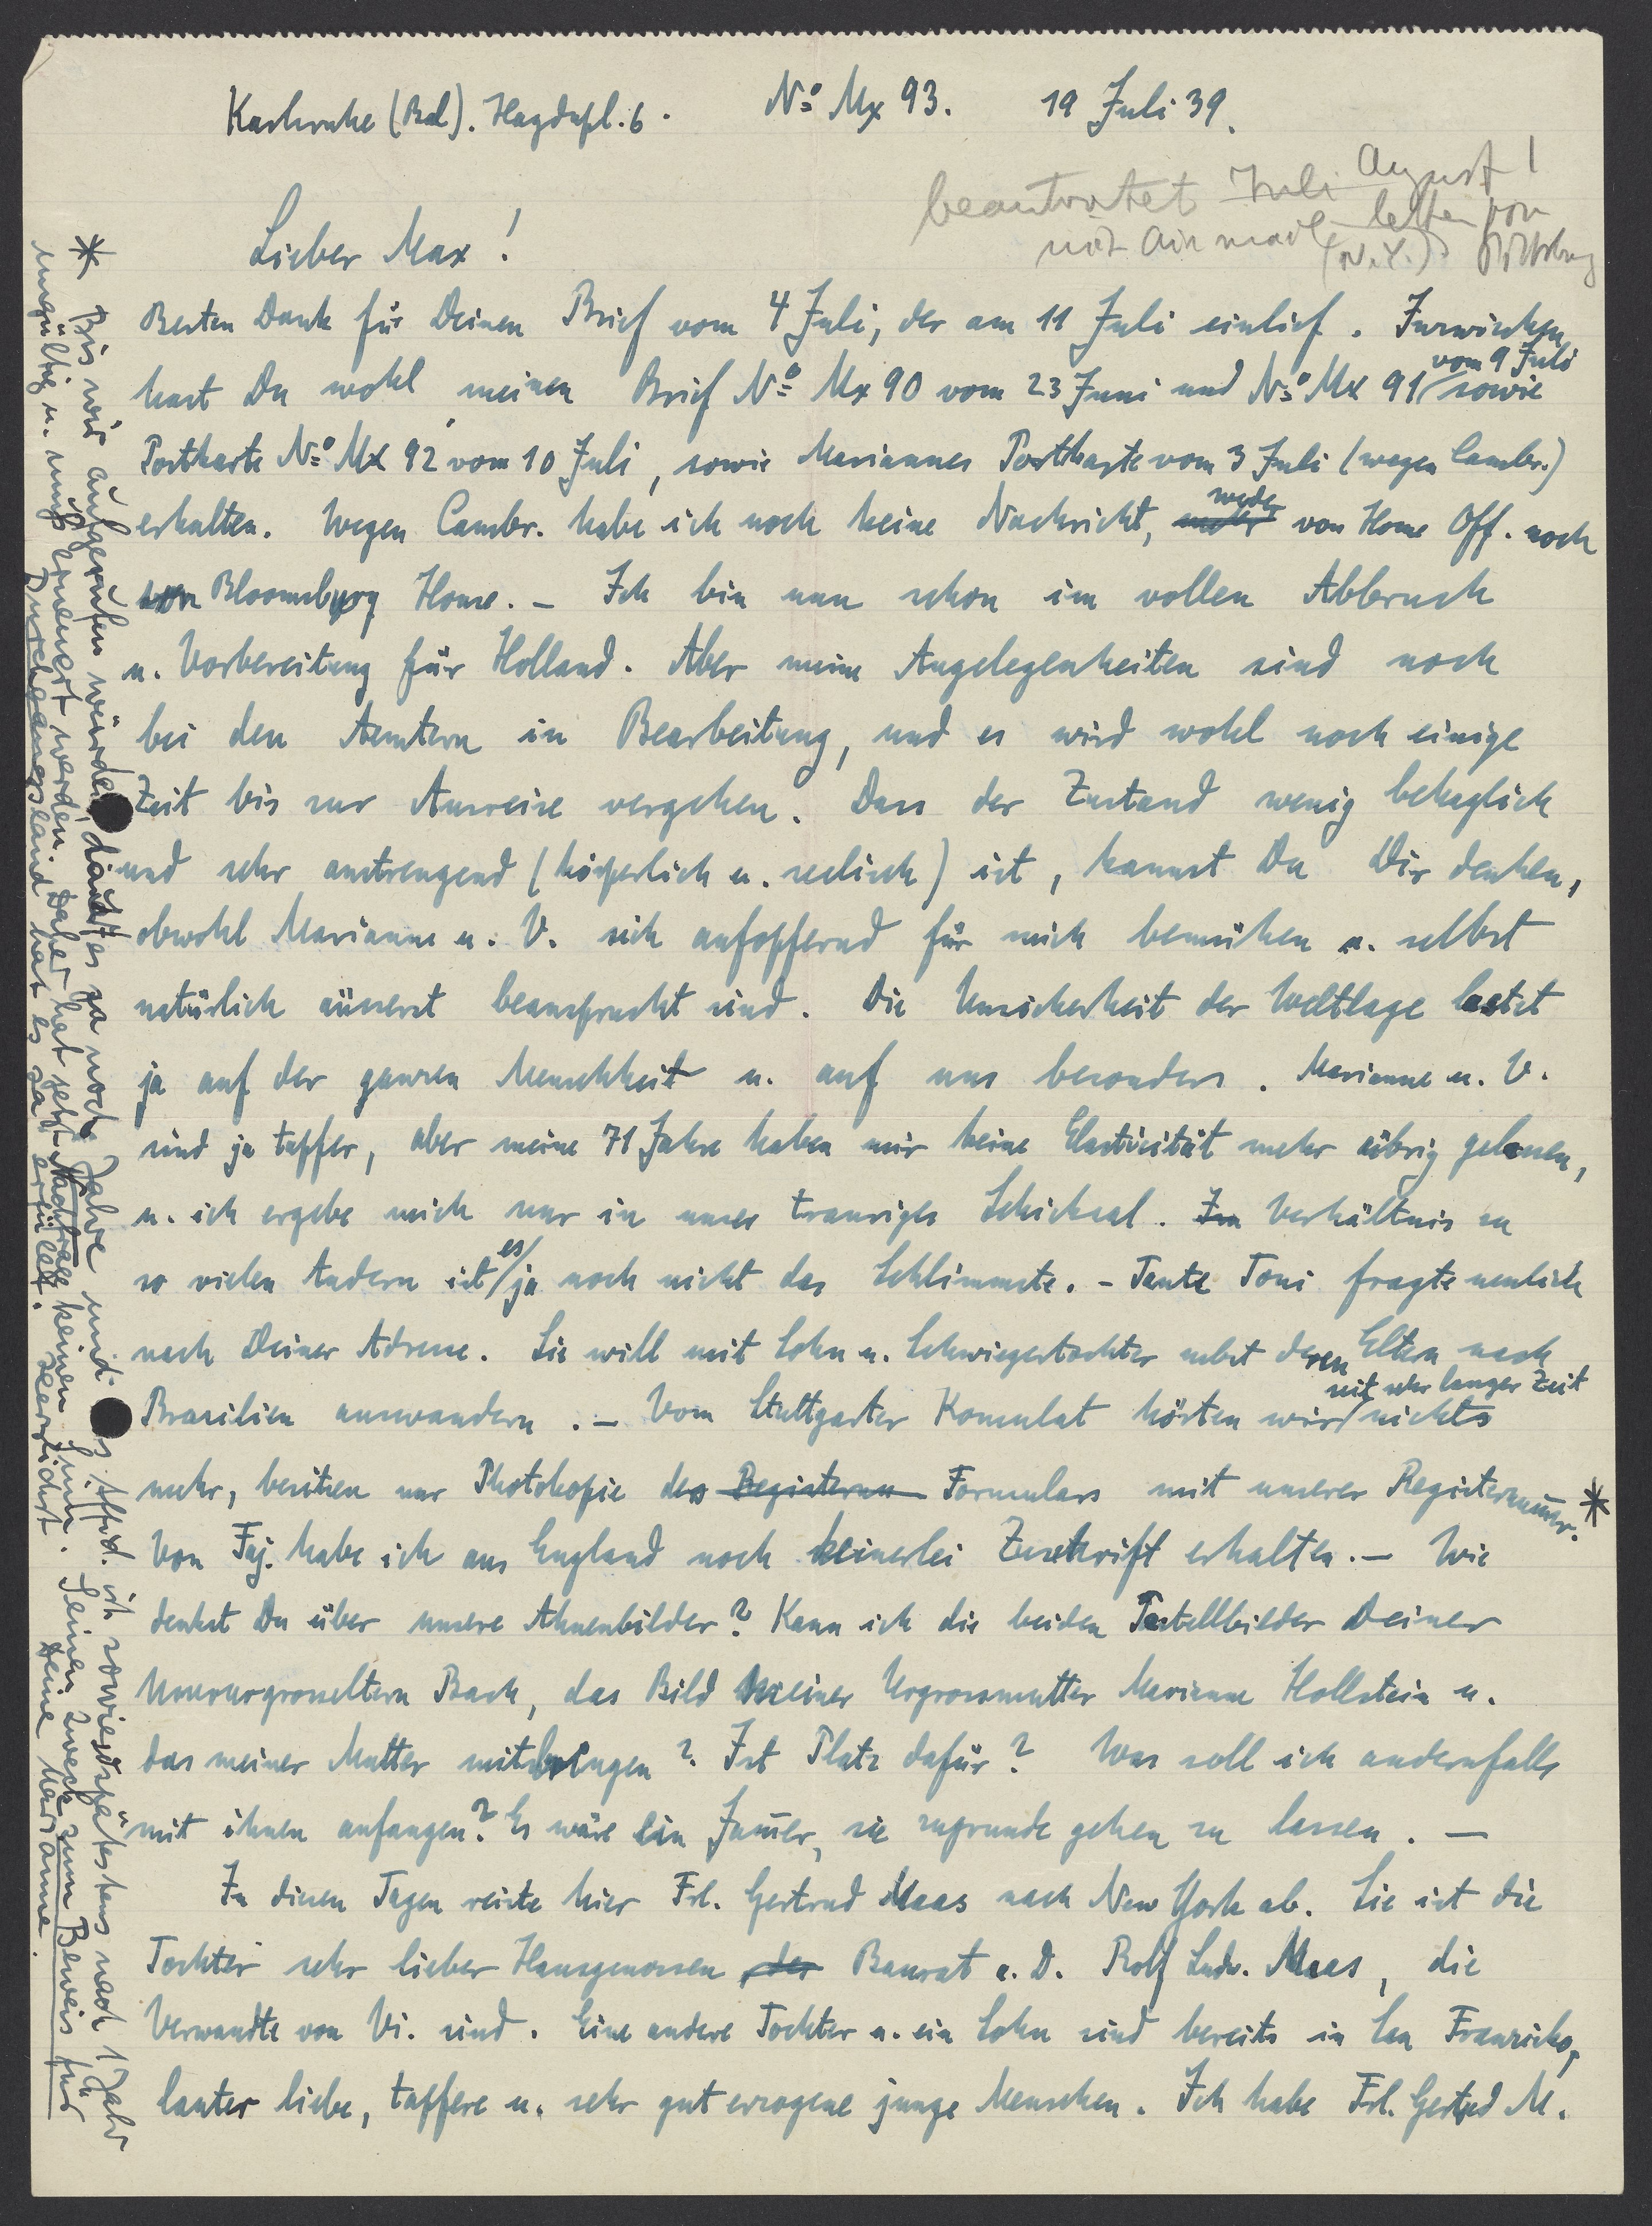 Karlsruhe (Bad). Haydnpl. 6. No Mx 93. 19 Juli 39.
beantwortet Juli August!
mit Air mail letter von
(N.Y.)
Lieber Max!
Besten Dank für Deinen Brief vom 4 Juli, der am 11 Juli einlief. Inzwischen
hast Du wohl meinen Brief No Mx 90 vom 23 Juni und No Mx 91 vom 9 Juli sowie
Postkarte No Mx 92 vom 10 Juli, sowie Mariannes Postkarte vom 3 Juli (wegen Cambr.)
erhalten. Wegen Cambr. habe ich noch keine Nachricht, weder von Home Off. noch
von Bloomsbury House. – Ich bin nun schon im vollen Abbruch
u. Vorbereitung für Holland. Aber meine Angelegenheiten sind noch
bei den Aemtern in Bearbeitung, und es wird wohl noch einige
Zeit bis zur Ausreise vergehen. Dass der Zustand wenig behaglich
und sehr anstrengend (körperlich u. seelisch) ist, kannst Du Dir denken,
obwohl Marianne u. V. sich aufopfernd für mich bemühen u. selbst
natürlich äusserst beansprucht sind. Die Unsicherheit der Weltlage lastet
ja auf der ganzen Menschheit u. auf uns besonders. Marianne u. V.
sind ja tapfer, aber meine 71 Jahre haben mir keine Elasticität mehr übrig gelassen,
u. ich ergebe mich nur in unser trauriges Schicksal. Im Verhältnis zu
so vielen Andern ist es ja noch nicht das Schlimmste. – Tante Toni fragte neulich
nach Deiner Adresse. Sie will mit Sohn u. Schwiegertochter nebst deren Eltern nach
Brasilien auswandern. – Vom Stuttgarter Konsulat hörten wir seit sehr langer Zeit nichts
mehr, besitzen nur Photokopie des Registernu Formulars mit unserer Registernum̄er. *
Von Faj. habe ich aus England noch keinerlei Zuschrift erhalten. – Wie
denkst Du über unsere Ahnenbilder? Kann ich die beiden Pastellbilder Deiner
Urururgrosseltern Bach, das Bild meiner Urgrossmutter Marianne Hollstein u.
das meiner Mutter mitbringen? Ist Platz dafür? Was soll ich andernfalls
mit ihnen anfangen? Es wäre ein Jam̄er, sie zugrunde gehen zu lassen. –
In diesen Tagen reiste hier Frl. Gertrud Maas nach New York ab. Sie ist die
Tochter sehr lieber Hausgenossen des Baurat a. D. Rolf Ludw. Maas, die
Verwandte von Vi. sind. Eine andere Tochter u. ein Sohn sind bereits in San Franzisko,
lauter liebe, tapfere u. sehr gut erzogene junge Menschen. Ich habe Frl. Gertrud M.
* Bis wir aufgerufen würden, dauert es ja noch Jahre und das Affid. ist sowieso spätestens nach 1 Jahr
ungültig u. muss erneuert werden. Daher hat jetzt Nachfrage keinen Sinn. Seinen Zweck zum Beweis für
Durchgangsland hat es ja erfüllt. Herzlichst Deine Marianne.